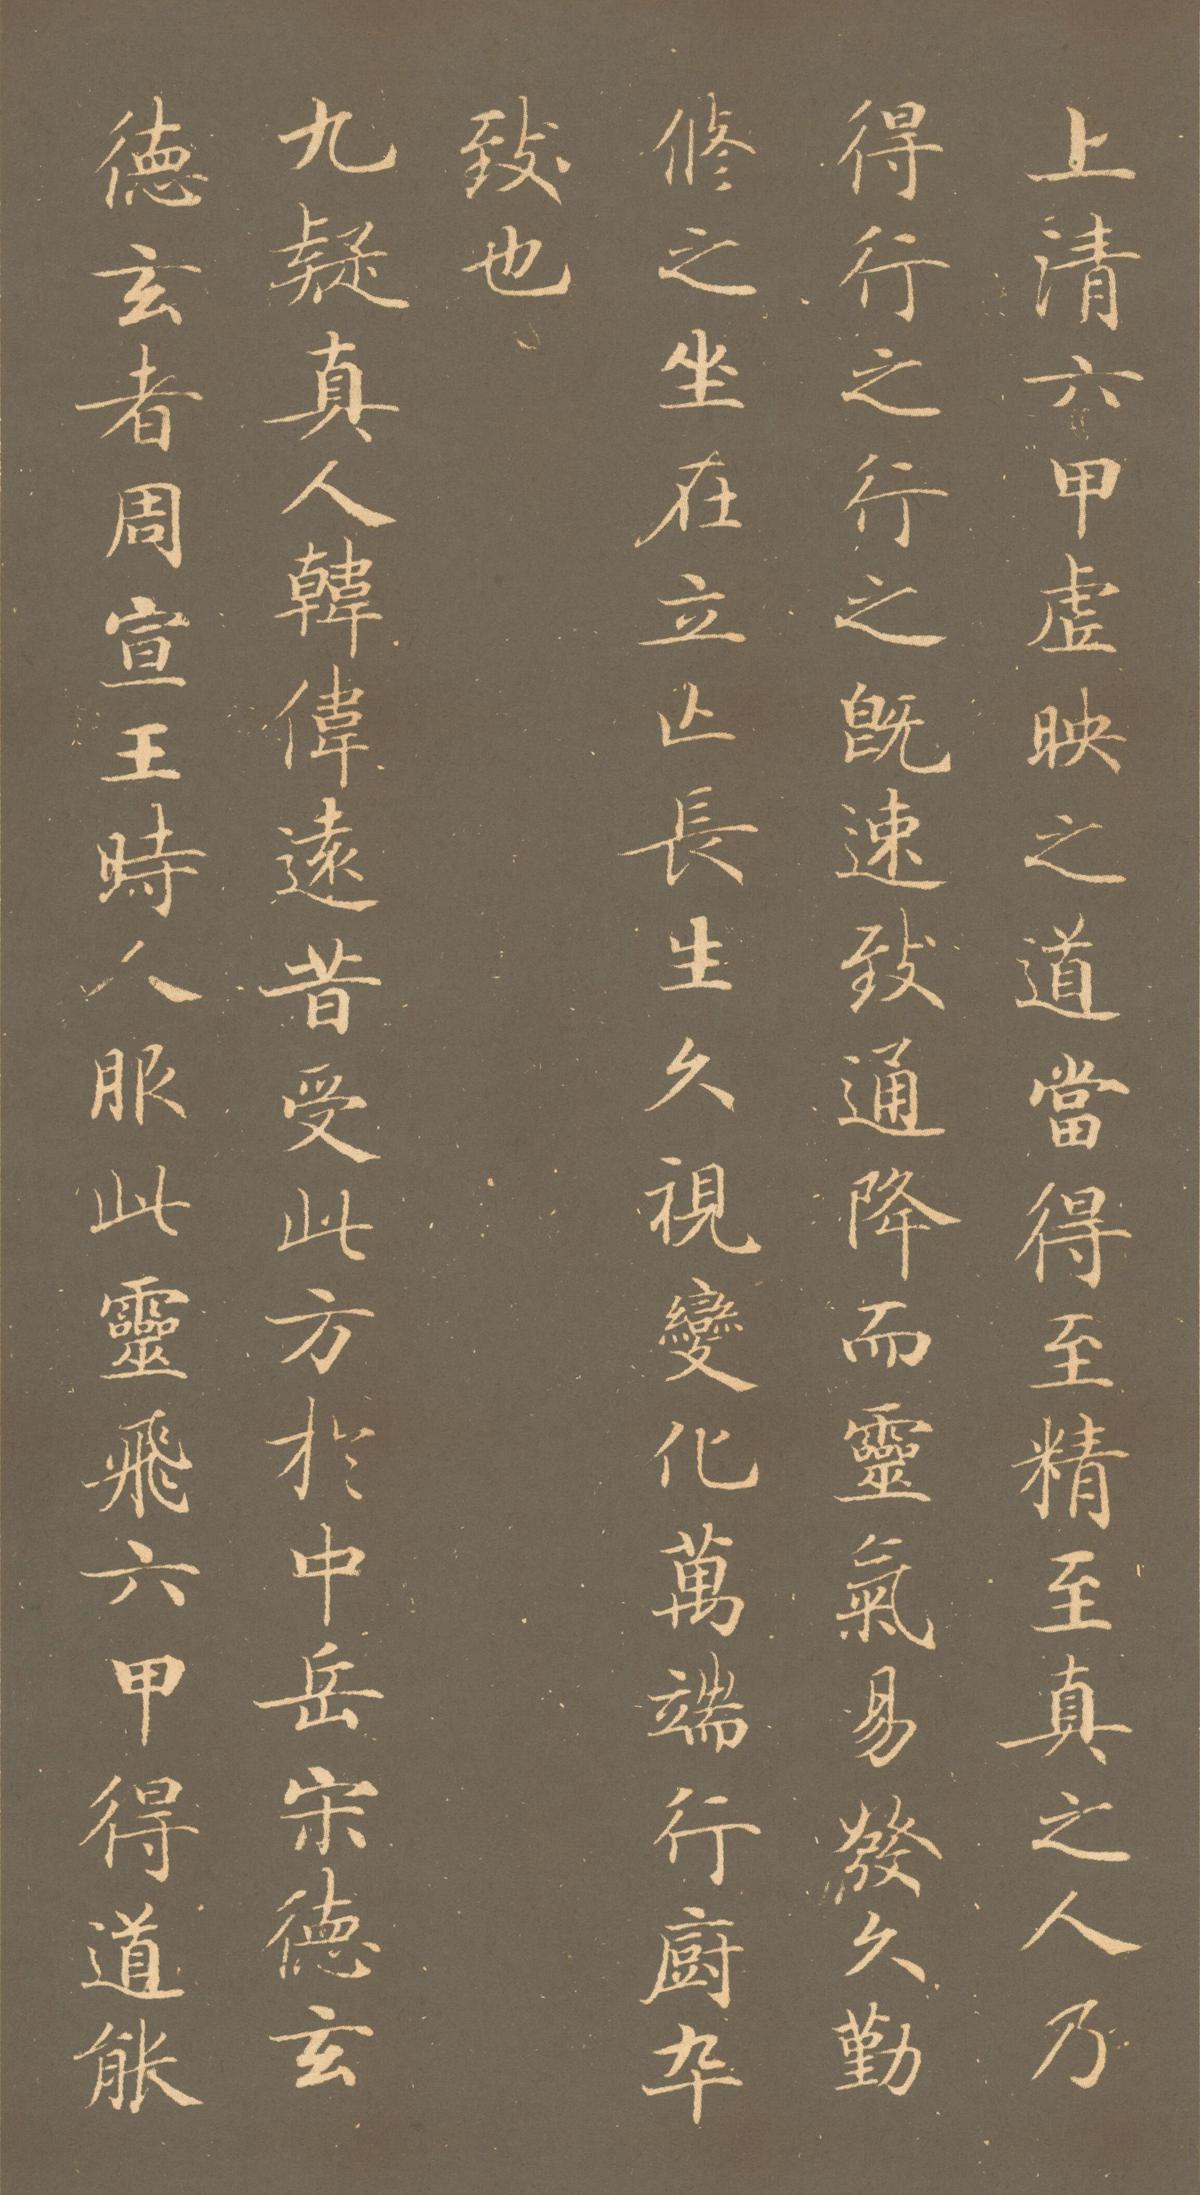 上清六甲虚映之道當得至精至真之人乃
得行之行之既速致通降而靈氣易發久勤
修之坐在立亾長生久視變化萬端行廚卒
致也
九疑真人韓偉遠昔受此方於中岳宋德玄
德玄者周宣王時人服此靈飛六甲得道能